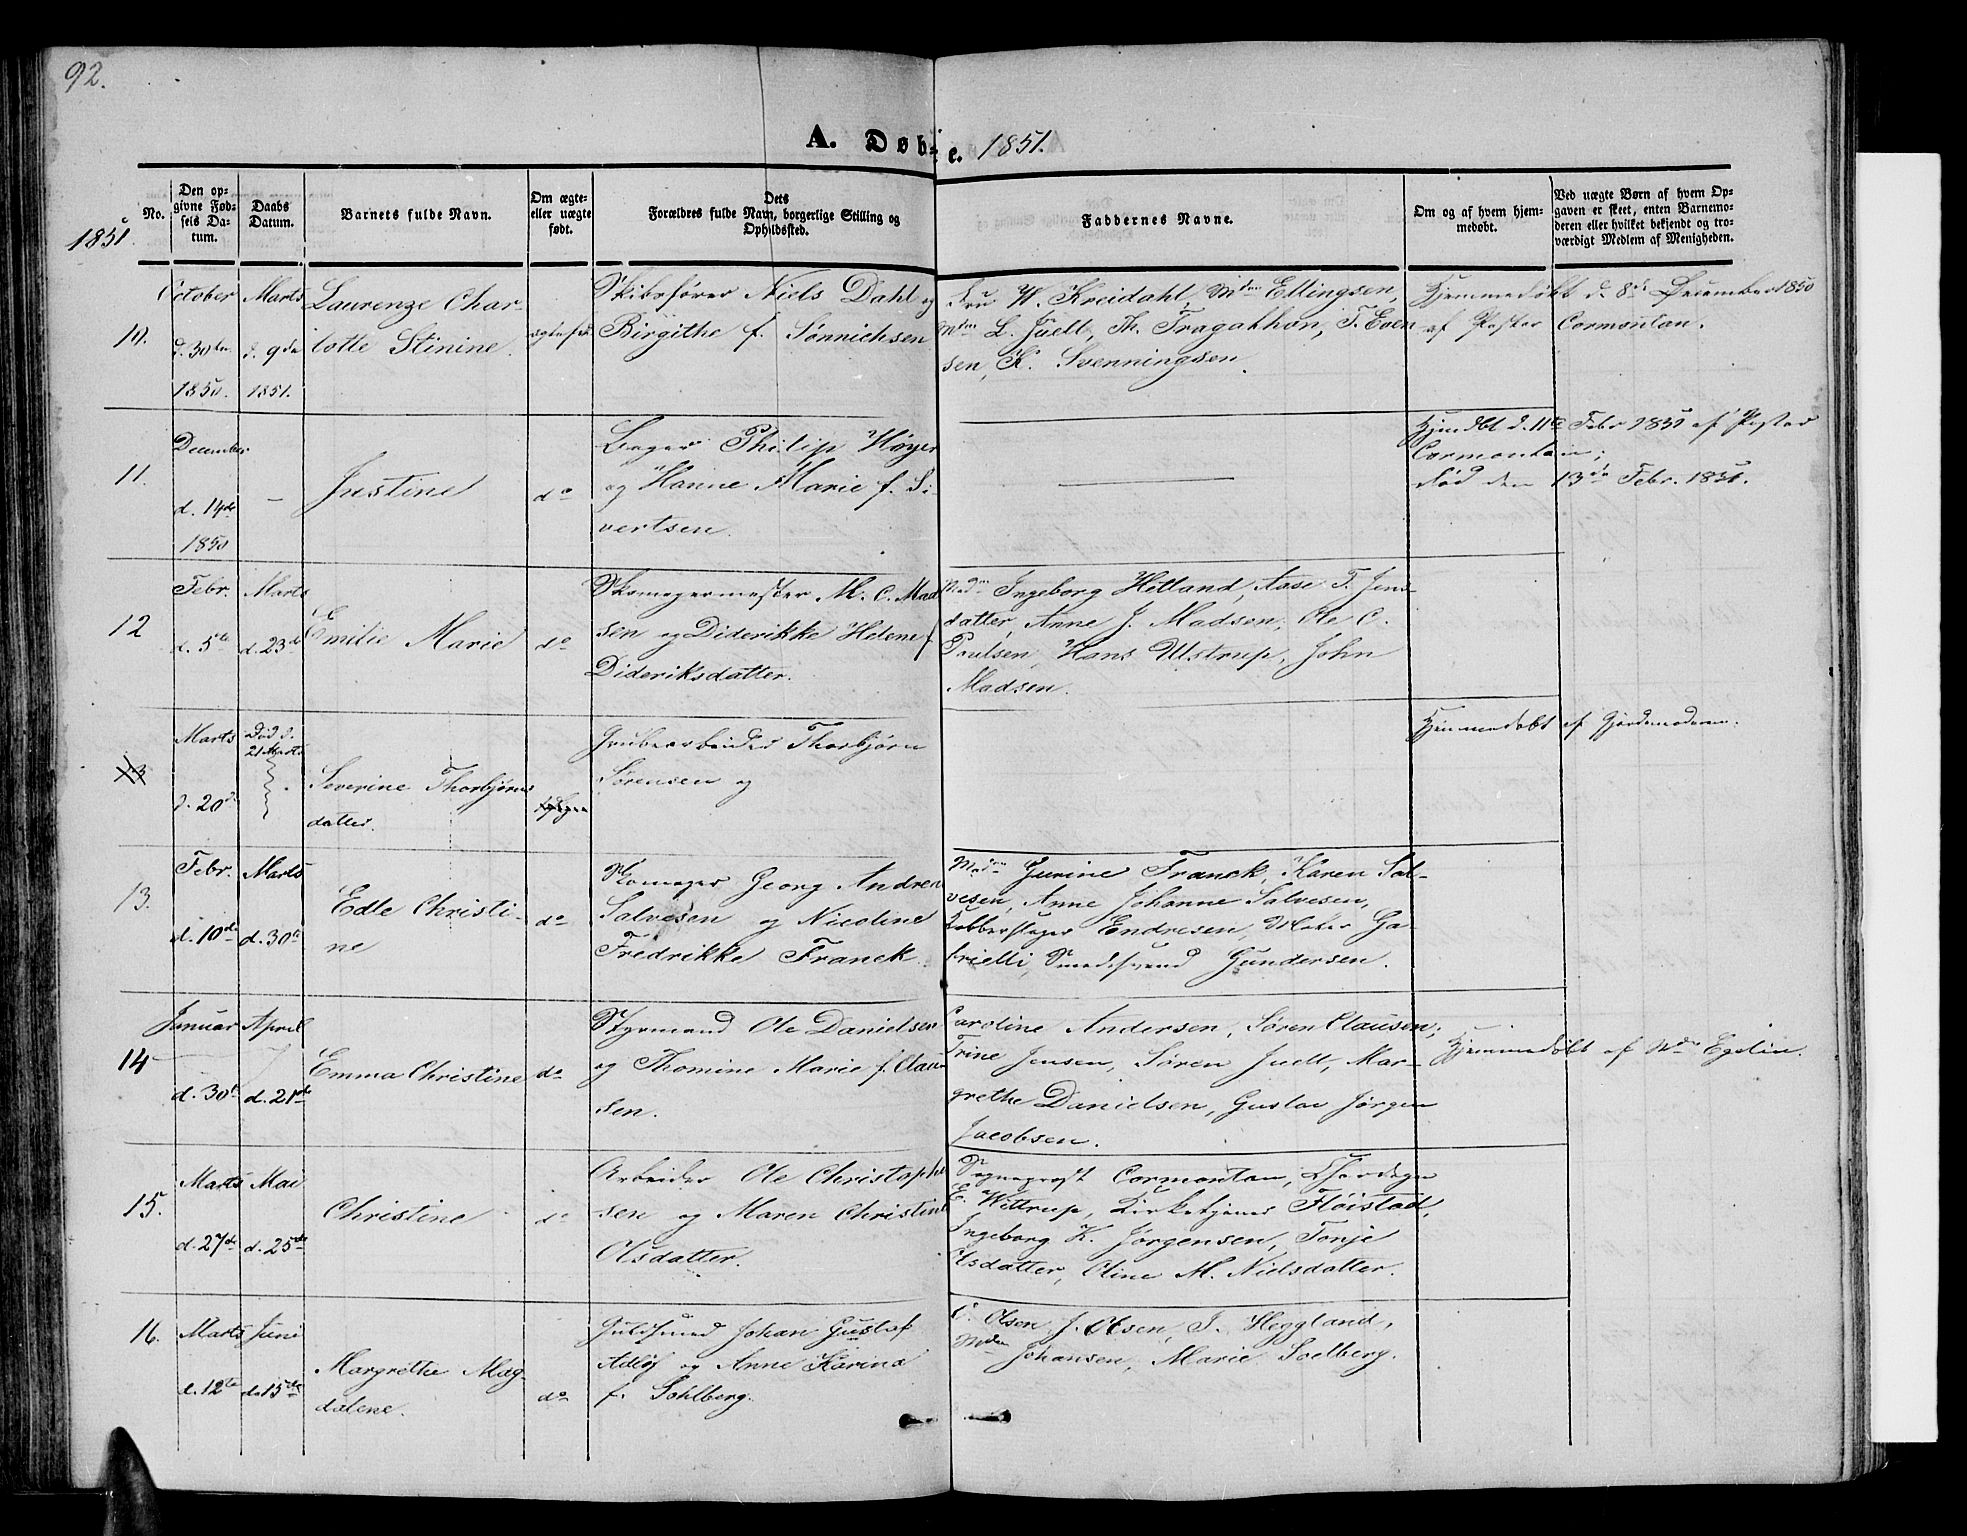 92.
A. Døbte. 1851.
1851.
No.
Den op-
givne Fød-
sels Da-
tum.
Daabs
Datum.
Barnets fulde Navn.
Om ægte-
eller uægte
født.
Dets
Forældres fulde Navn, borgerlige Stilling og
Opholdssted.
Faddernes Navne.
Om og af hvem hjem-
medøbt.
Ved uægte Børn af hvem Op-
gaven er skeet, enten Barnemo-
deren eller hvilket bekjendt og tro-
værdigt Medlem af Menigheden.
10.
October
d. 30te
1850.
Marts
d. 9de
1851.
Laurenze Char-
lotte Stinine.
ægtefød
Skibsfører Niels Dahl og
Birgithe f. Sønnichsen
Fru W. Kreidahl, Mdm Ellingsen,
Mdm L. Juell, Th. Fragatthon, T. Even
sen, K. Svenningsen.
Hjemmedøbt d. 8de December 1850
af Pastor Cormontan.
11.
December
d. 14de
1850
-
Justine
do
Bager Philip Høyer
og Hanne Marie f. Si-
vertsen.
Hjemdbt d. 11te Febr 1851 af Pastor
Cormontan;
død den 13de Febr. 1851.
12
Febr.
d. 5te
Marts
d. 23de
Emilie Marie
do
Skomagermester M. C. Mad
sen og Diderikke Helene f.
Dideriksdatter.
Mdm Ingeborg Hetland, Aase T. Jens-
datter, Anne J. Madsen, Ole C.
Poulsen, Hans Ulstrup, John
Madsen.
13
Marts
d. 20de
Død d.
21 Marts
Severine Thorbjørns
datter.
Grubearbeider Thorbjørn
Sørensen og
Hjemmedøbt af Gjordemoderen.
13.
Febr.
d. 10de
Marts
d. 30te
Edle Christi-
ne
do
Skomager Georg Andreas
Salvesen og Nicoline
Fredrikke Franck.
Mdm Gurine Franck, Karen Sal-
vesen, Anne Johanne Salvesen,
Kobberslager Endresen, Maler Ga-
brielli, Smedesvend Gundersen.
14
Januar
d. 30te
April
d. 21de
Emma Christine
do
Styrmand Ole Danielsen
og Thomine Marie f. Clau-
sen.
Caroline Andersen, Søren Clausen,
Trine Jensen, Søren Juell, Mar-
grethe Danielsen, Gustav Jørgen
Jacobsen.
Hjemmedøbt af Mdm Egelin.
15.
Marts
d. 27de
Mai
d. 25de
Christine
do
Arbeider Ole Christophe
sen og Maren Christine
Olsdatter.
Sogneprest Cormontan,
E. Wittrup, Kirketjener Fløistad,
Ingeborg K. Jørgensen, Tonje
Olsdatter, Oline M. Nielsdatter.
16.
Marts
d. 12te
Juni
d. 15de
Margrethe Mag-
dalene.
do
Guldsmed Johan Gustaf
Adlöf og Anne Karina
f. Sohlberg.
C. Olsen, J. Olsen, I. Heggland,
Mdm Johansen, Marie Soelberg.